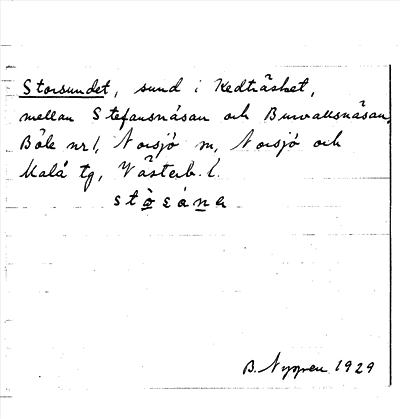 Storsundet, sund i Kedträsket,
mellan Stefansnäsan och Burvallsnäsan,
Böle nr 1, Norsjö sn, Norsjö och
Malå tg, Västerb. l.
B. Nygren 1929